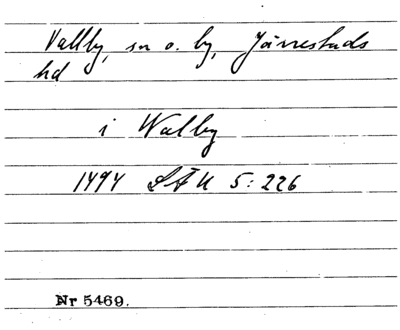 Vallby, sn o. by, Järrestads
hd
i Walby
1494 LÄU 5:226
Nr 5469.